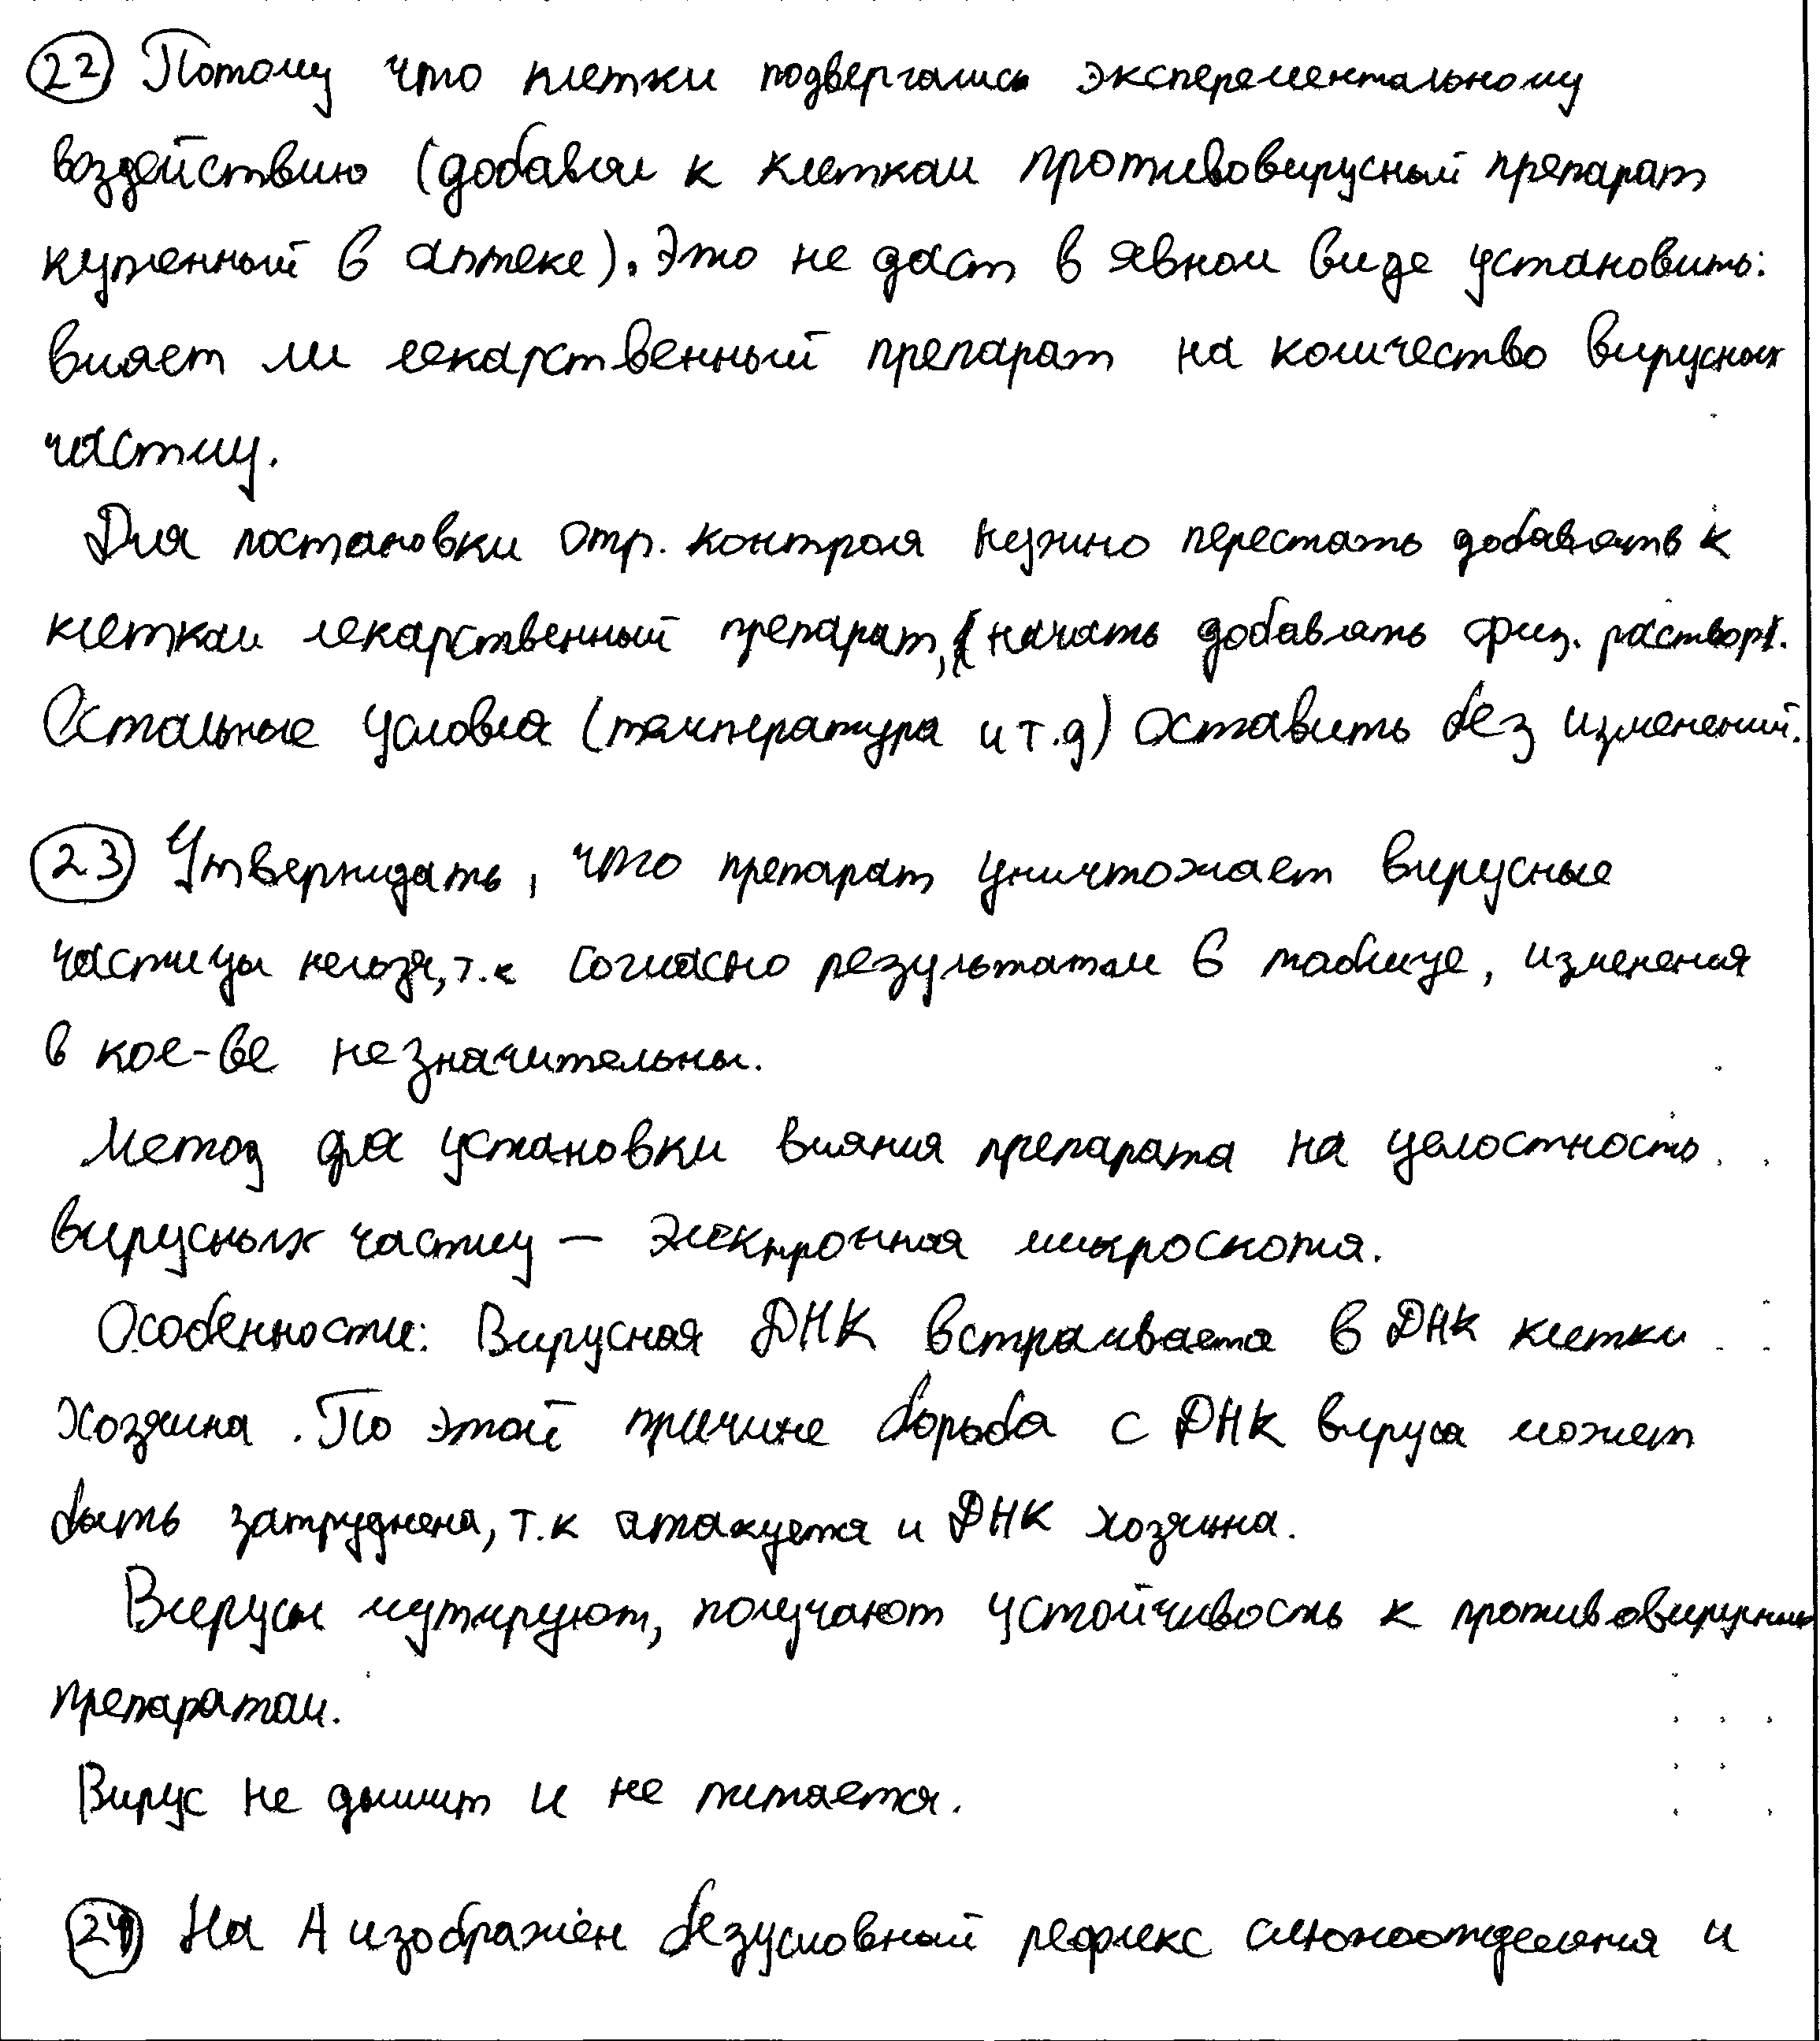 22 Потому что клетки подвергались эксперементальному
воздействию (добавил к клеткам противовирусный препарат
купленный в аптеке). Это не даст в явном виде установить:
влияет ли лекарственный препарат на количество вирусных
частиц.
Для постановки отр. контроля нужно перестать добавлять к
клеткам лекарственный препарат, начать добавлять физ. раствор.
Остальные условия (температура и т.д) оставить без изменений.
23 Утверждать, что препарат уничтожает вирусные
частицы нельзя, т.к согласно результатам в таблице, изменения
в кол-ве незначительны.
Метод для установки влияния препарата на целостность
вирусных частиц – электронная микроскопия.
Особенности: Вирусная ДНК встраивается в ДНК клетки
хозяина. По этой причине борьба с ДНК вируса может
быть затруднена, т.к атакуется и ДНК хозяина.
Вирусы мутируют, получают устойчивость к противовирусным
препаратам.
Вирус не дышит и не питается.
24 На А изображён безусловный рефлекс слюноотделения и